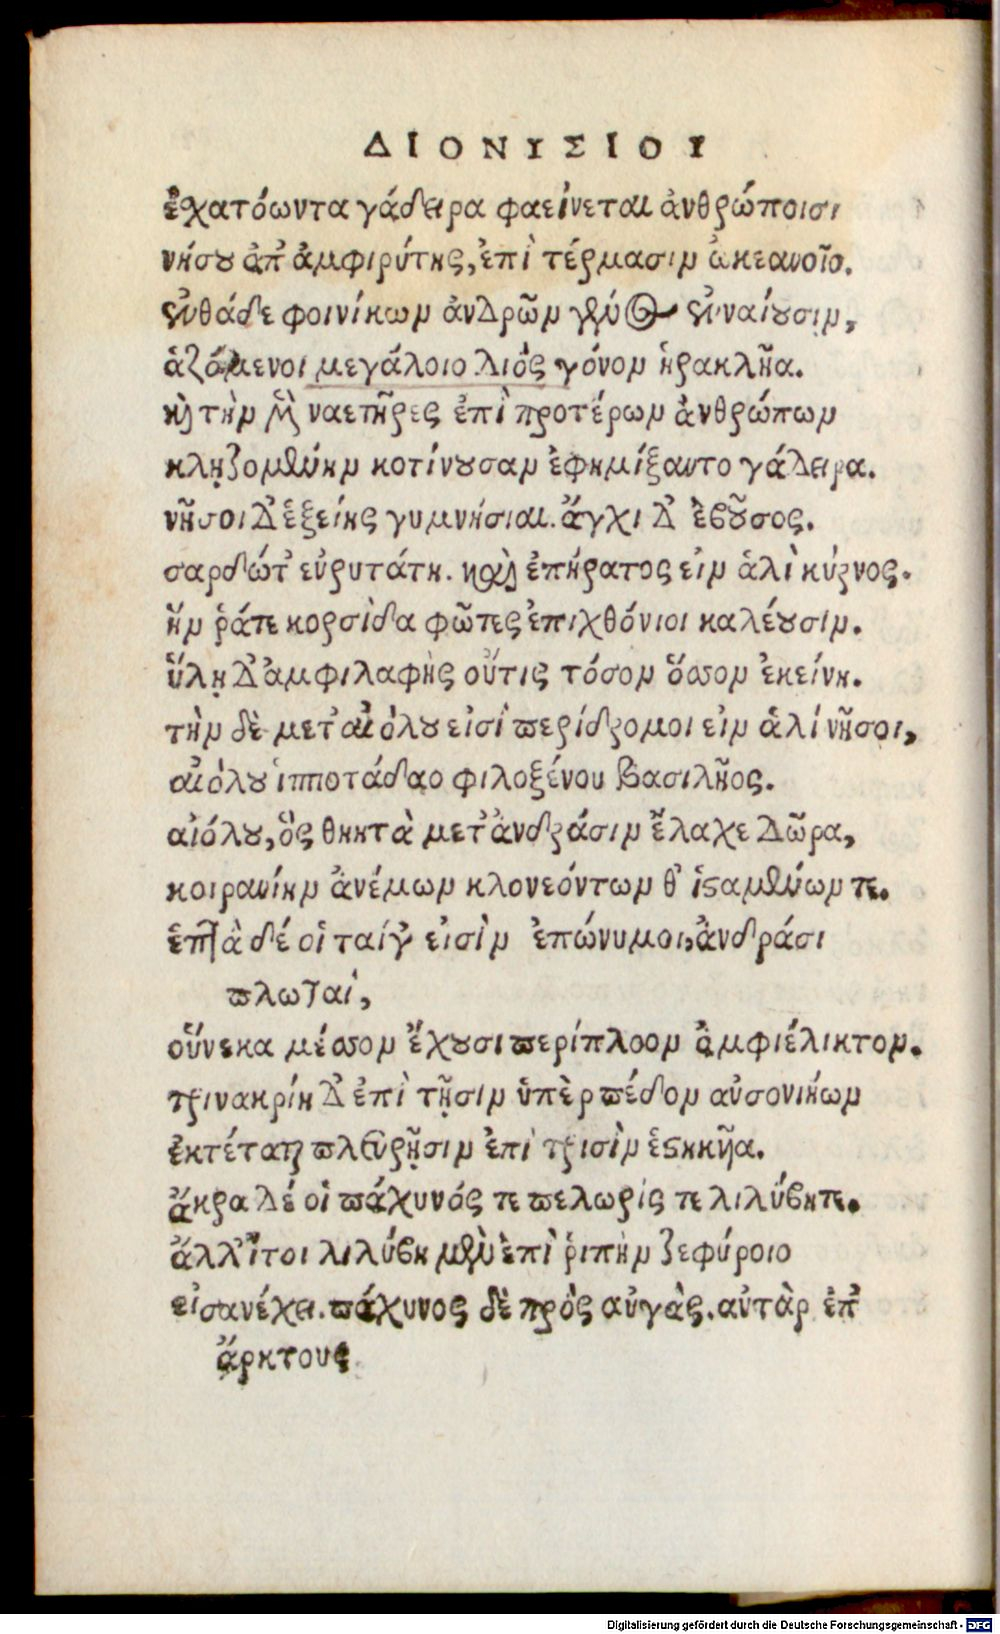 ΔΙΟΝΥΣΙΟΥ
ἐχατόωντα γάδειρα φαείνεται ἀνθρώποισι
νήσου ἀπ' ἀμφιρύτης, ἐπὶ τέρμασιν ὠκεανοῖο.
ἐνθάδε φοινίκων ἀνδρῶν γένος ἐνναίουσιν,
ἁζόμενοι μεγάλοιο Διὸς γόνον ἡρακλῆα.
καὶ τὴν μὲν ναετῆρες ἐπὶ προτέρων ἀνθρώπων
κληζομένην κοτίνουσαν ἐφημίξαντο γάδειρα.
νῆσοι δ' ἑξείης γυμνήσιαι. ἄγχι δ' ἐβοῦσος.
σαρδώτ' εὐρυτάτη. καὶ ἐπήρατος εἰν ἁλὶ κύρνος.
ἥν ῥάτε κορσίδα φῶτες ἐπιχθόνιοι καλέουσιν.
ὕλη δ' ἀμφιλαφὴς οὔτις τόσον ὅσσον ἐκείνη.
τὴν δὲ μετ' αἰόλου εἰσὶ περίδρομοι εἰν ἁλὶ νῆσοι,
αἰόλου ἱπποτάδαο φιλοξένου βασιλῆος.
αἰόλου, ὃς θηητὰ μετ' ἀνδράσιν ἔλαχε δῶρα,
κοιρανίην ἀνέμων κλονεόντων θ' ἱσταμένων τε.
ἑπτὰ δέ οἱ ταίγ' εἰσὶν ἐπώνυμοι, ἀνδράσι
πλωταί,
οὕνεκα μέσσον ἔχουσι περίπλοον ἀμφιέλικτον.
τρινακρίη δ' ἐπὶ τῇσιν ὑπὲρ πέδον αὐσονιήων
ἐκτέταται πλευρῇσιν ἐπὶ τρισὶν ἑστηκῆα.
ἄκρα δέ οἱ πάχυνός τε πελωρίς τε λιλύβητε.
ἀλλ' ἤτοι λιλύβη μὲν ἐπὶ ῥιπὴν ζεφύροιο
εἰσανέχει. πάχυνος δὲ πρὸς αὐγὰς. αὐτὰρ ἐπ'
ἄρκτους
Digitalisierung gefördert durch die Deutsche Forschungsgemeinschaft - DFG